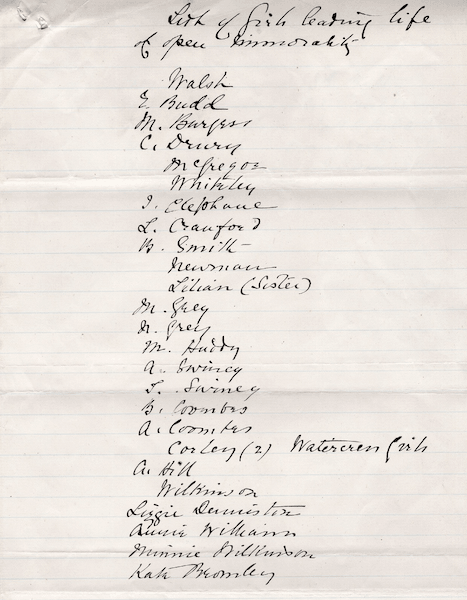 List of Girls leading life
of open immorality
Walsh
E. Budd
M. Burgess
C. Drury
McGregor
Whiteley
I. Elephane
L. Crawford
B. Smith
Newman
Lilian (Sister)
M. Grey
N. Grey
M. Huddy
A. Swiney
T. Swiney
B. Coombes
A. Coombes
Corley (2) Watercress Girls
A. Hill
Wilkinson
Lizzie Denniston
Annie Williams
Minnie Wilkinson
Kate Bromley